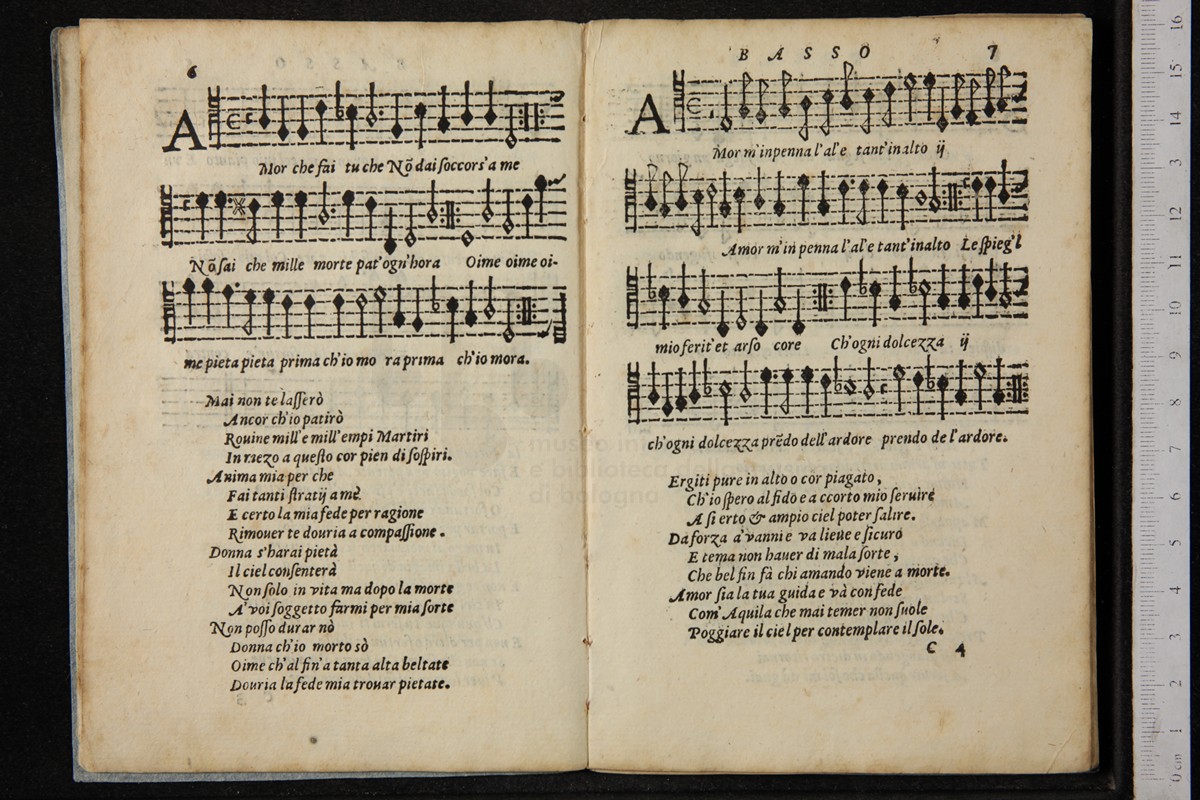 6
AMor che fai tu che Nõ dai soccors'a me
Nõ sai che mille morte pat'ogn'hora Oime oime oi-
me pieta pieta prima ch'io mo ra prima ch'io mora.
Mai non te lasserò
Ancor ch'io patirò
Rouine mill'e mill'empi Martiri
In mezo a questo cor pien di sospiri.
Anima mia per che
Fai tanti stratij a mè
E certo la mia fede per ragione
Rimouer te douria a compassione.
Donna s'harai pietà
Il ciel consenterà
Non solo in vita ma dopo la morte
A' voi soggetto farmi per mia sorte
Non posso durar nò
Donna ch'io morto sò
Oime ch'al fin'a tanta alta beltate
Douria la fede mia trouar pietate.
BASSO 7
AMor m'inpenna l'al'e tant'in alto ij
Amor m'in penna l'al'e tant'in alto Le spieg'l
mio ferit'et arso core Ch'ogni dolcezza ij
ch'ogni dolcezza prēdo dell'ardore prendo de l'ardore.
Ergiti pure in alto o cor piagato,
Ch'io spero al fido e accorto mio seruire
A si erto & ampio ciel poter salire.
Da forza a' vanni e va lieue e sicuro
E tema non hauer di mala sorte,
Che bel fin fà chi amando viene a morte.
Amor sia la tua guida e và con fede
Com' Aquila che mai temer non suole
Poggiare il ciel per contemplare il sole.
C 4
museo int
e biblioteca della musica
di bologna
0 cm 1 2 3 4 5 6 7 8 9 10 11 12 13 14 15 16